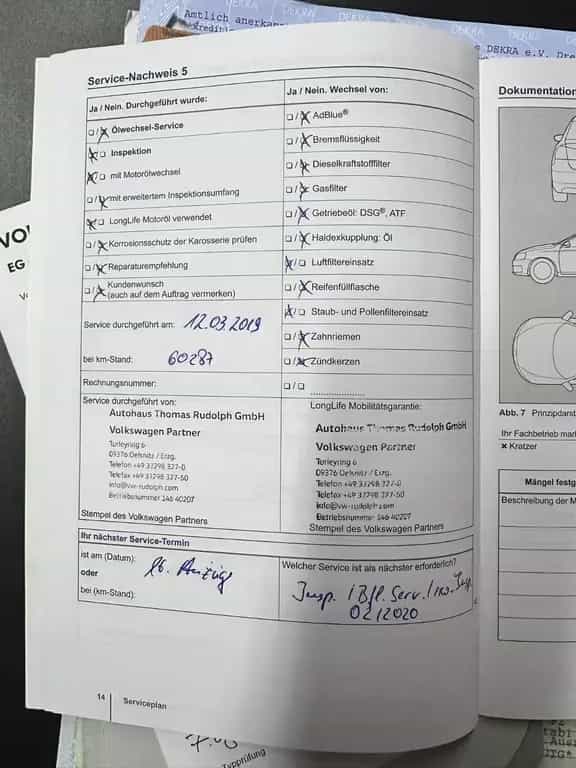 Amtlich anerkan
DEKRA
DEKRA
DEKRA e.V. Dre
Service-Nachweis 5
Ja / Nein. Durchgeführt wurde:
❑ / ❑ Ölwechsel-Service
❑ / ❑ Inspektion
❑ / ❑ mit Motorölwechsel
❑ / ❑ mit erweitertem Inspektionsumfang
❑ / ❑ LongLife Motoröl verwendet
❑ / ❑ Korrosionsschutz der Karosserie prüfen
❑ / ❑ Reparaturempfehlung
❑ / ❑ Kundenwunsch
(auch auf dem Auftrag vermerken)
Service durchgeführt am: 12.03.2019
bei km-Stand: 60287
Rechnungsnummer:
Ja / Nein. Wechsel von:
❑ / ❑ AdBlue®
❑ / ❑ Bremsflüssigkeit
❑ / ❑ Dieselkraftstofffilter
❑ / ❑ Gasfilter
❑ / ❑ Getriebeöl: DSG®, ATF
❑ / ❑ Haldexkupplung: Öl
❑ / ❑ Luftfiltereinsatz
❑ / ❑ Reifenfüllflasche
❑ / ❑ Staub- und Pollenfiltereinsatz
❑ / ❑ Zahnriemen
❑ / ❑ Zündkerzen
❑ / ❑
Service durchgeführt von:
Autohaus Thomas Rudolph GmbH
Volkswagen Partner
Turleyring 6
09376 Oelsnitz / Erzg.
Telefon +49 37298 327-0
Telefax +49 37298 327-60
info@vw-rudolph.com
Betriebsnummer 146 40207
Stempel des Volkswagen Partners
LongLife Mobilitätsgarantie:
Autohaus Thomas Rudolph GmbH
Volkswagen Partner
Turleyring 6
09376 Oelsnitz / Erzg.
Telefon +49 37298 327-0
Telefax +49 37298 327-60
info@vw-rudolph.com
Betriebsnummer 146 40207
Stempel des Volkswagen Partners
Ihr nächster Service-Termin
ist am (Datum):
oder
bei (km-Stand):
lt. Anzeige
Welcher Service ist als nächster erforderlich?
Insp. / Bfl. Serv. /
02/2020
14
Serviceplan
Dokumentation
Abb. 7 Prinzipdarst
Ihr Fachbetrieb mar
× Kratzer
Mängel festg
Beschreibung der M
VO
EG
Typprüfung